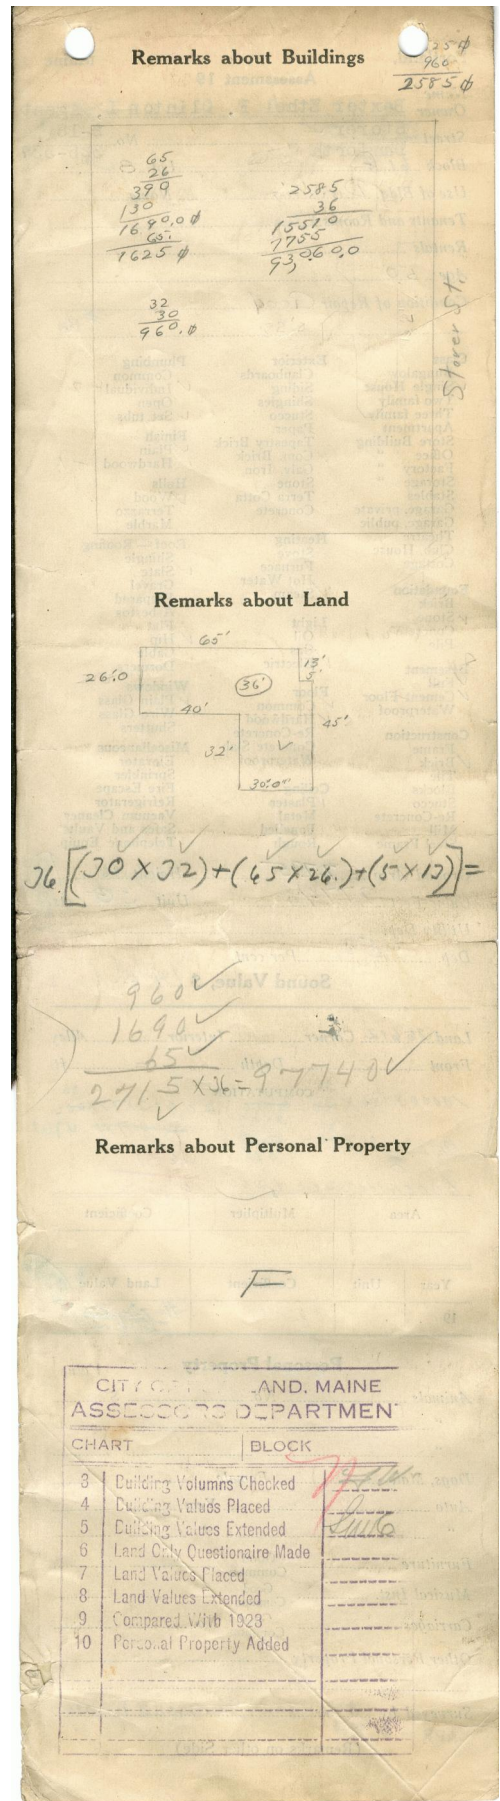 Remarks about Buildings
960
2585 ϕ
65
26
390
130
1690.0 ϕ
65.
1625 ϕ
2585
36
15510
7755
93,060.0
32
30
960. ϕ
Storer St.
Remarks about Land
65'
26'.0
13'
5'
36'
40'
45'
32'
30'.0"
36.[(30 X 32) + (65 X 26.) + (5 X 13)] =
960
1690
65
2715 X 36 = 97740
Remarks about Personal Property
F
CITY OF LAND, MAINE
ASSESSORS DEPARTMENT
CHART BLOCK
3 Building Volumns Checked
4 Building Values Placed
5 Building Values Extended
6 Land Only Questionaire Made
7 Land Values Placed
8 Land Values Extended
9 Compared With 1923
10 Personal Property Added